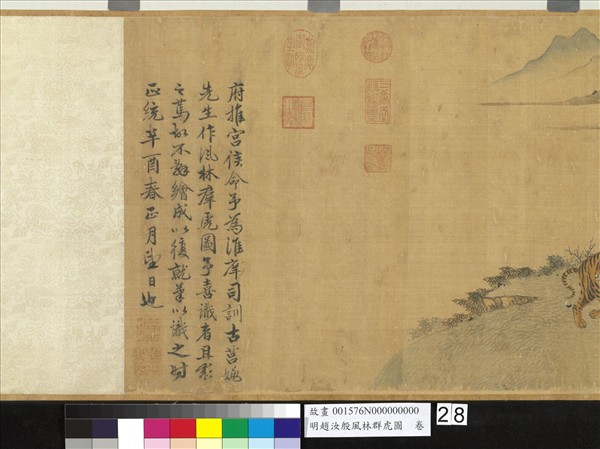 府推宫侯命予為淮庠司訓古莒姚
先生作風林群虎圖予喜識者且求
之篤故不辭繪成以復就筆以識之時
正統辛酉春正月望日也
故畫 001576N000000000
明趙汝殷風林群虎圖 卷
28